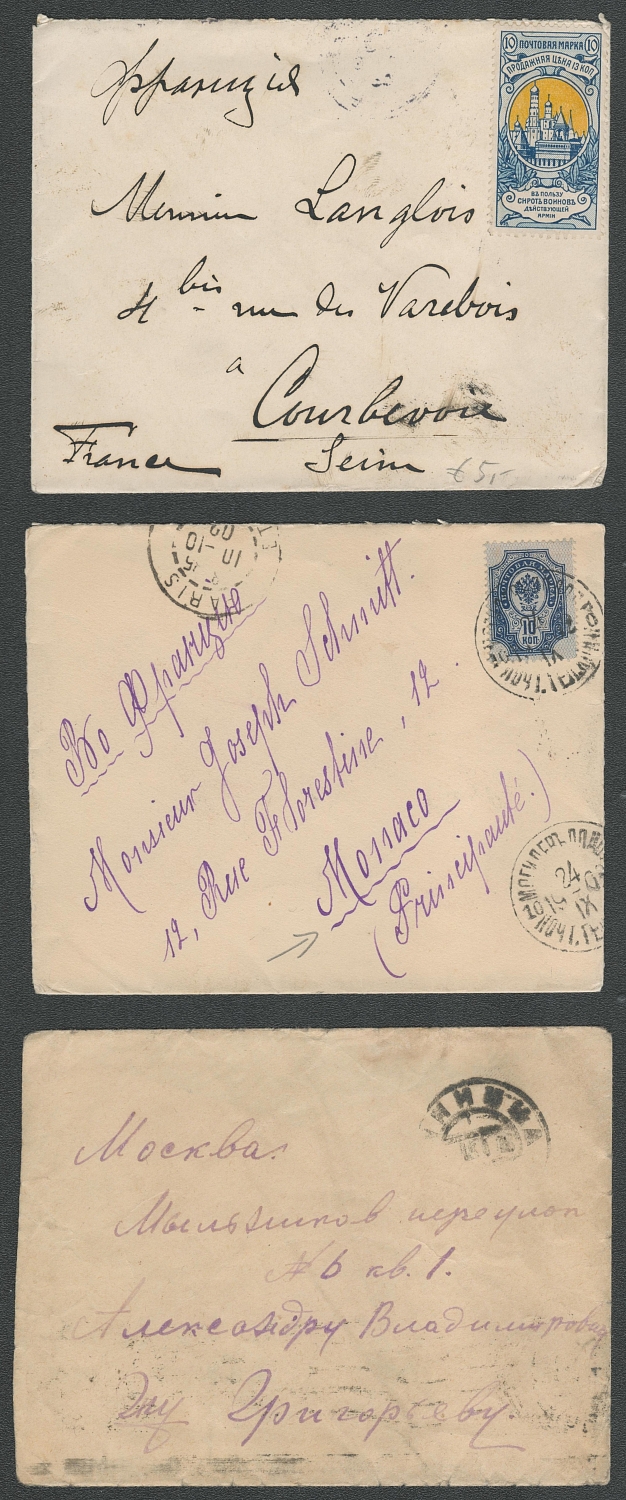 10 ПОЧТОВАЯ МАРКА 10
ПРОДАЖНАЯ ЦѢНА 13 КОП
ВЪ ПОЛЬЗУ
СИРОТЪ ВОИНОВЪ
ДѢЙСТВУЮЩЕЙ
АРМІИ
Франція
Monsieur Langlois
4 bis rue des Varebois
à
Courbevoie
France Seine
€ 5,-
PARIS
10-10
02
ПОЧТОВАЯ МАРКА
10
КОП
Во Францію
Monsieur Joseph Schmitt.
12, Rue Florestine, 12.
Monaco
(Principauté.)
МОГИЛЕВЪ ПОДО
24
IX
ПОЧ. ТЕЛ
Москва.
Мыльников переулок
№ 6 кв. 1.
Александру Владимирови
Григорьеву.